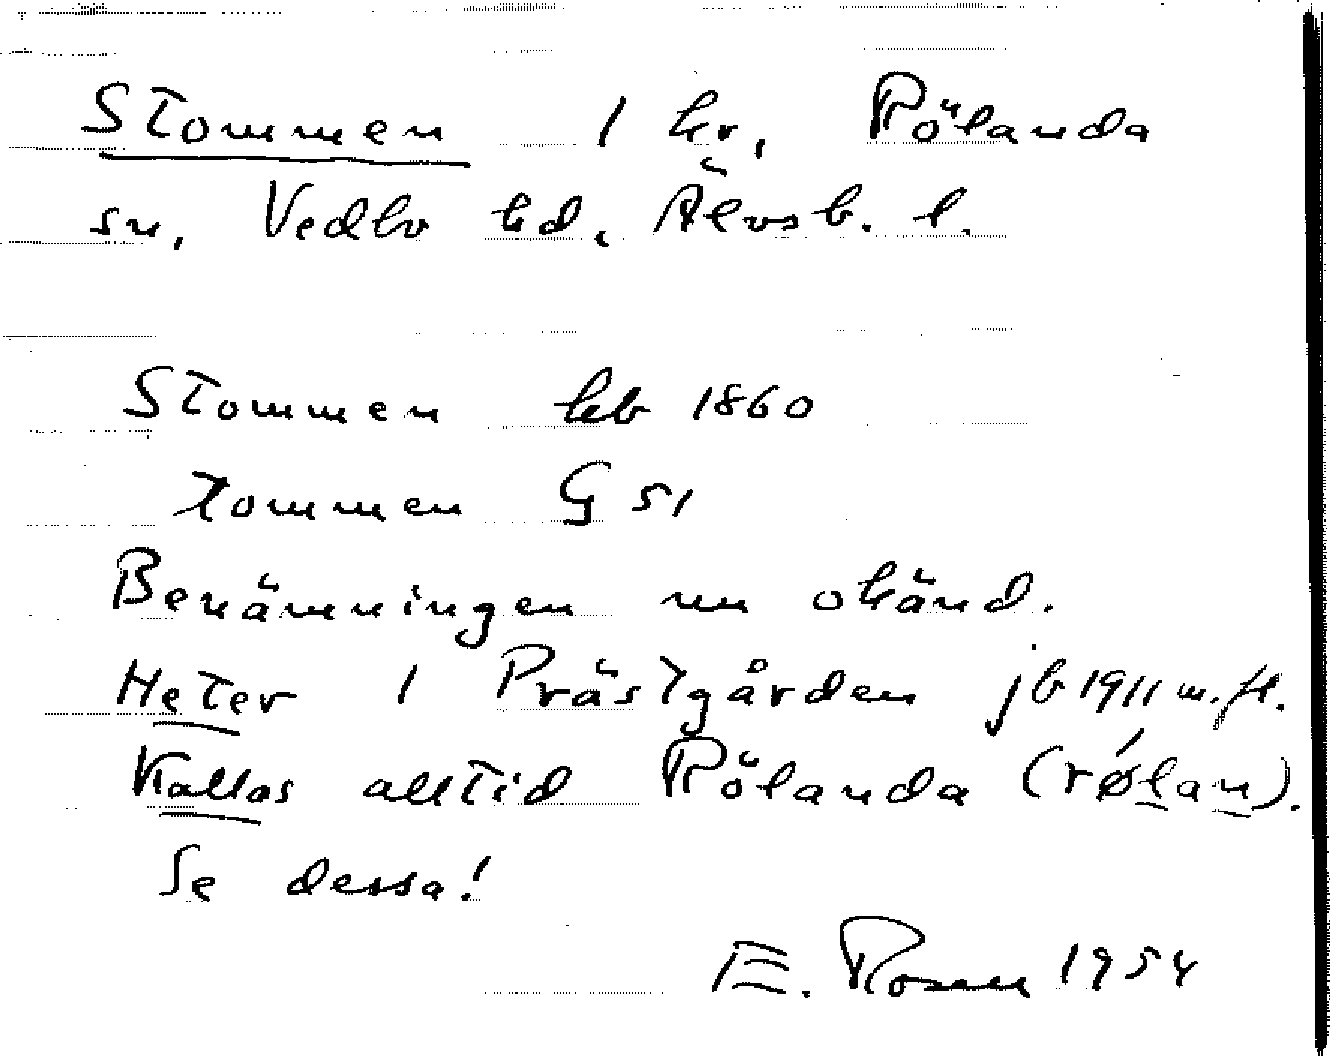 Stommen 1 hr, Rölanda
sn, Vedbo hd, Älvsb. l.
Stommen hkb 1860
Tommen G 51
Benämningen nu okänd.
Heter 1 Prästgården jb 1911 m. fl.
Kallas alltid Rölanda (røĺan).
Se dessa!
E. Rosen 1954